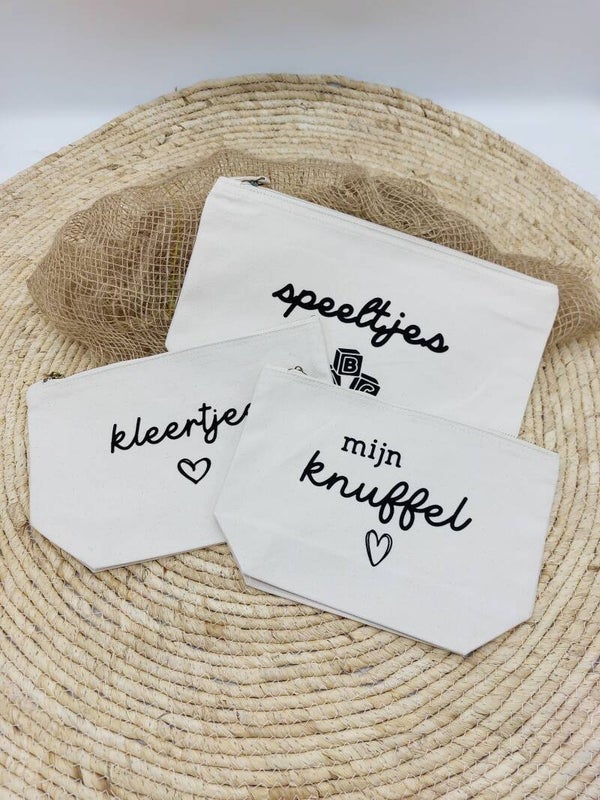 speeltjes
B
kleertjes
mijn
knuffel